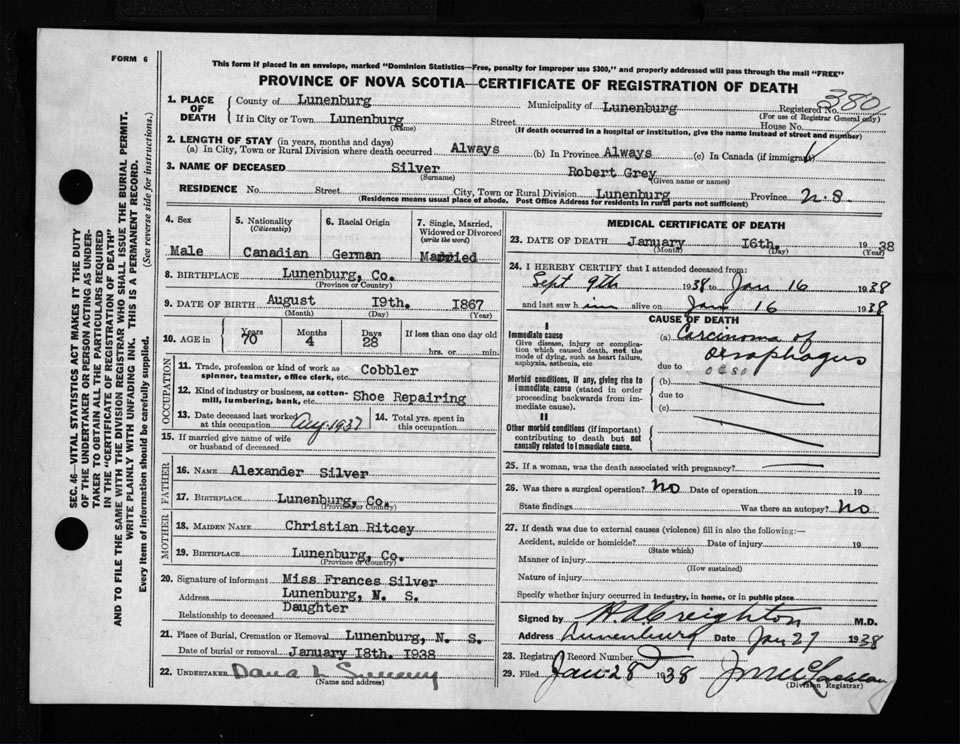 FORM 6
This form if placed in an envelope, marked "Dominion Statistics—Free, penalty for improper use $300," and properly addressed will pass through the mail "FREE"
PROVINCE OF NOVA SCOTIA—CERTIFICATE OF REGISTRATION OF DEATH
SEC. 46—VITAL STATISTICS ACT MAKES IT THE DUTY
OF THE UNDERTAKER OR PERSON ACTING AS UNDER-
TAKER TO OBTAIN ALL THE PARTICULARS REQUIRED
IN THE "CERTIFICATE OF REGISTRATION OF DEATH"
AND TO FILE THE SAME WITH THE DIVISION REGISTRAR WHO SHALL ISSUE THE BURIAL PERMIT.
WRITE PLAINLY WITH UNFADING INK. THIS IS A PERMANENT RECORD.
Every item of information should be carefully supplied. (See reverse side for instructions.)
1. PLACE OF DEATH County of Lunenburg Municipality of Lunenburg Registered No. 380
(For use of Registrar General only)
If in City or Town Lunenburg Street House No.
(Name) (If death occurred in a hospital or institution, give the name instead of street and number)
2. LENGTH OF STAY (in years, months and days)
(a) In City, Town or Rural Division where death occurred Always (b) In Province Always (c) In Canada (if immigrant)
3. NAME OF DECEASED Silver Robert Grey
(Surname) (Given name or names)
RESIDENCE No. Street City, Town or Rural Division Lunenburg Province N.S.
(Residence means usual place of abode. Post Office Address for residents in rural parts not sufficient)
4. Sex 5. Nationality (Citizenship) 6. Racial Origin 7. Single, Married, Widowed or Divorced (write the word)
Male Canadian German Married
8. BIRTHPLACE Lunenburg, Co.
(Province or Country)
9. DATE OF BIRTH August 19th. 1867
(Month) (Day) (Year)
10. AGE in Years Months Days If less than one day old
70 4 28 hrs. or min.
OCCUPATION
11. Trade, profession or kind of work as spinner, teamster, office clerk, etc. Cobbler
12. Kind of industry or business, as cotton-mill, lumbering, bank, etc. Shoe Repairing
13. Date deceased last worked at this occupation Aug. 1937 14. Total yrs. spent in this occupation
15. If married give name of wife or husband of deceased
FATHER
16. NAME Alexander Silver
17. BIRTHPLACE Lunenburg, Co.
(Province or Country)
MOTHER
18. MAIDEN NAME Christian Ritcey
19. BIRTHPLACE Lunenburg, Co.
(Province or Country)
20. Signature of informant Miss Frances Silver
Address Lunenburg, N. S.
Relationship to deceased Daughter
21. Place of Burial, Cremation or Removal Lunenburg, N. S.
Date of burial or removal January 18th. 1938
22. UNDERTAKER Dana L
(Name and address)
MEDICAL CERTIFICATE OF DEATH
23. DATE OF DEATH January 16th. 1938
(Month) (Day) (Year)
24. I HEREBY CERTIFY that I attended deceased from:
Sept 9th 1938 to Jan 16 1938
and last saw him alive on Jan 16 1938
CAUSE OF DEATH
I
Immediate cause (a) Carcinoma of
Give disease, injury or complication which caused death, not the mode of dying, such as heart failure, asphyxia, asthenia, etc oesophagus
due to
Morbid conditions, if any, giving rise to immediate cause (stated in order proceeding backwards from immediate cause). (b)
due to
(c)
II
Other morbid conditions (if important) contributing to death but not causally related to immediate cause.
25. If a woman, was the death associated with pregnancy?
26. Was there a surgical operation? No Date of operation 19
State findings Was there an autopsy? No
27. If death was due to external causes (violence) fill in also the following:—
Accident, suicide or homicide? Date of injury 19
(State which)
Manner of injury
(How sustained)
Nature of injury
Specify whether injury occurred in industry, in home, or in public place
Signed by H A Creighton M.D.
Address Lunenburg Date Jan 27 1938
28. Registrar Record Number
29. Filed Jan 28 1938
(Division Registrar)